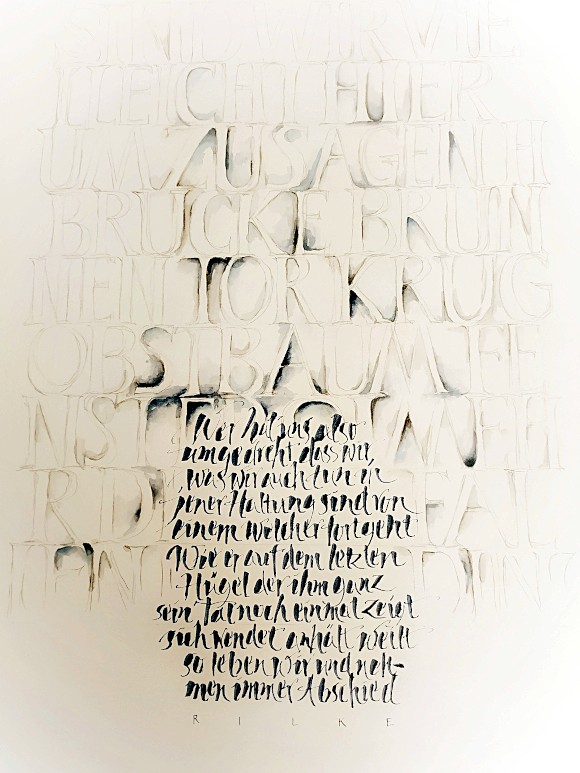 SIND WIR VIE
LLEICHT HIER
UM ZU SAGEN H
BRUCKE BRUN
NEN TOR KRUG
OBSTBAUM FE
NSTER
Wer hat uns also
umgedreht, dass wir,
was wir auch tun in
jener Haltung sind von
einem welcher fortgeht
Wie er auf dem letzten
Hügel der ihm ganz
sein Tal noch einmal zeigt
sich wendet anhält weilt
so leben wir und neh-
men immer Abschied
RILKE